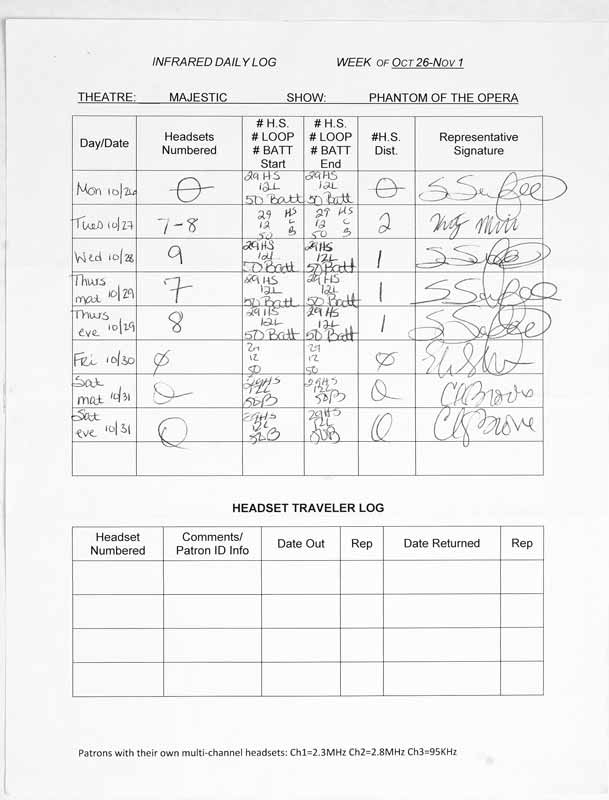 INFRARED DAILY LOG WEEK OF OCT 26-NOV 1
THEATRE: MAJESTIC SHOW: PHANTOM OF THE OPERA
Day/Date Headsets Numbered # H.S. # LOOP # BATT Start # H.S. # LOOP # BATT End #H.S. Dist. Representative Signature
Mon 10/26 0 29HS 12L 50 Batt 29HS 12L 50 Batt 0
Tues 10/27 7-8 29 HS 12 L 50 B 29 HS 12 L 50 B 2
Wed 10/28 9 29HS 12L 50 Batt 29HS 12L 50 Batt 1
Thurs mat 10/29 7 29HS 12L 50 Batt 29HS 12L 50 Batt 1
Thurs eve 10/29 8 29HS 12L 50 Batt 29HS 12L 50 Batt 1
Fri 10/30 0 29 12 50 29 12 50 0
Sat mat 10/31 0 29HS 12L 50B 29HS 12L 50B 0
Sat eve 10/31 0 29HS 12L 50B 29HS 12L 50B 0
HEADSET TRAVELER LOG
Headset Numbered Comments/ Patron ID Info Date Out Rep Date Returned Rep
Patrons with their own multi-channel headsets: Ch1=2.3MHz Ch2=2.8MHz Ch3=95KHz